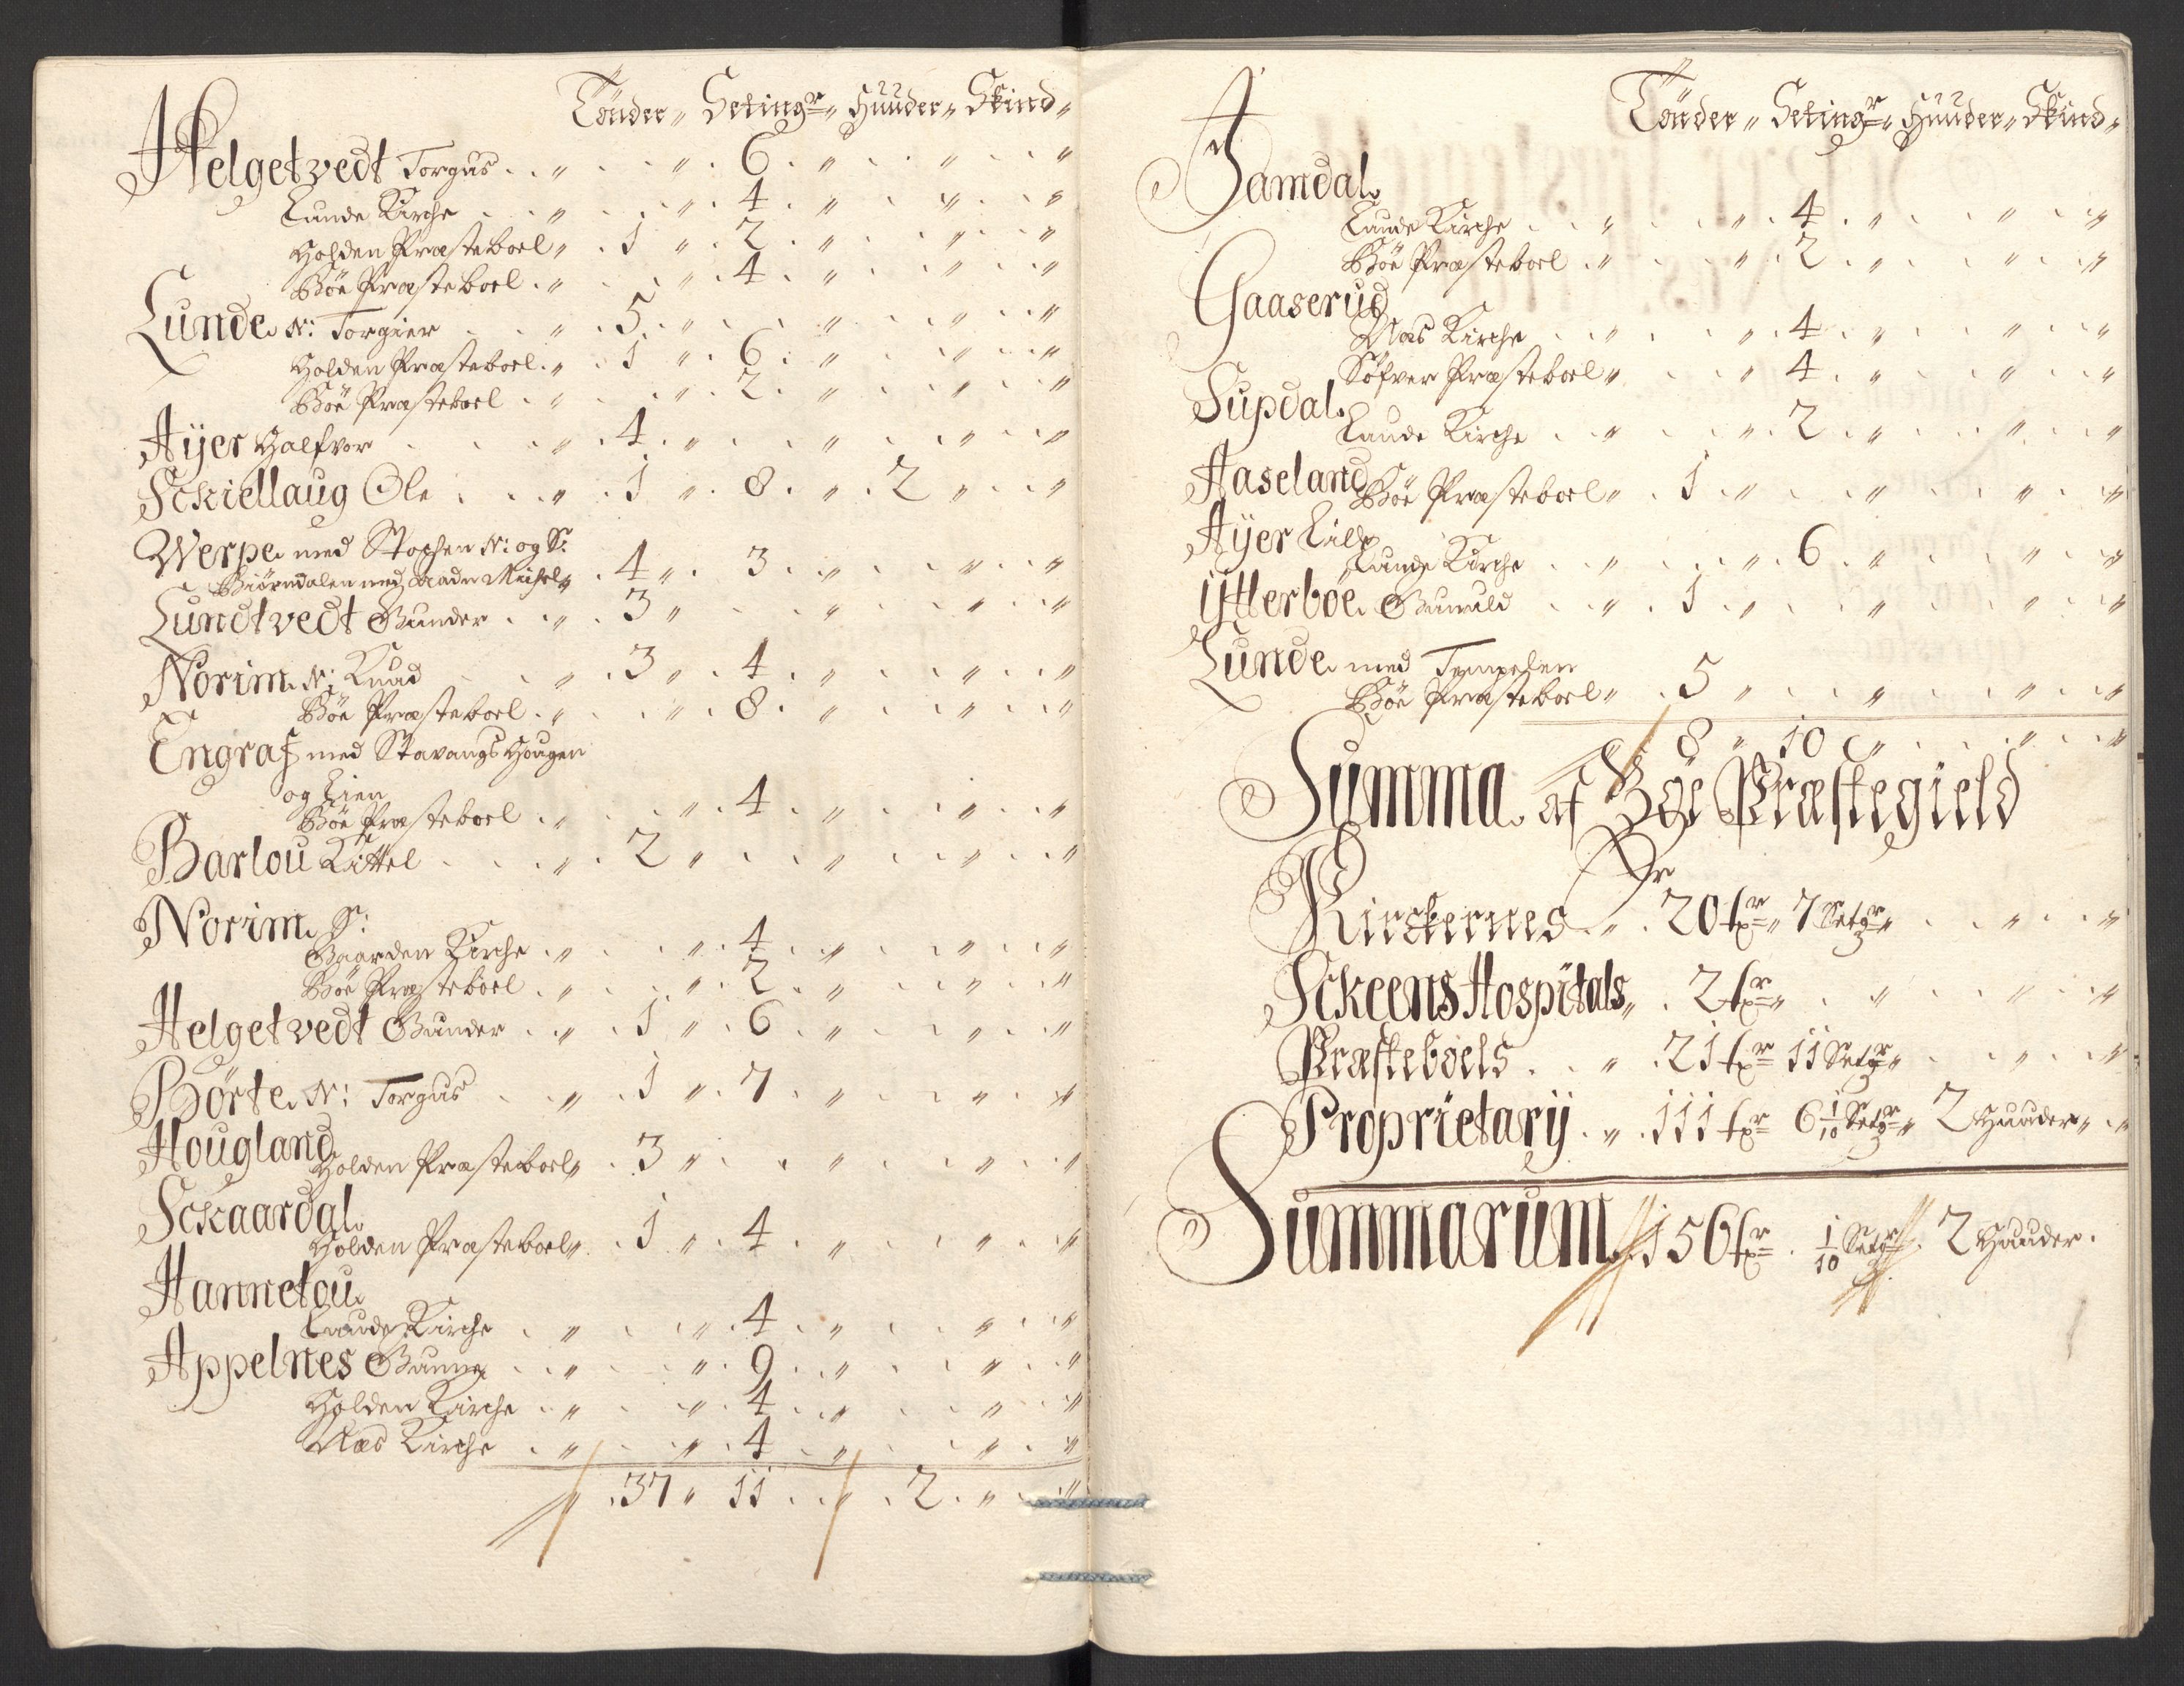 Tönder „ Setingr „ Huuder „ Skind „
Helgetvedt Torgus . . „ . . „ . 6 . „ . . „ . . „
Lunde Kirche . . „ . . „ . 4 . „ . „ . . „
Holden Præsteboel „ . 1 „ . 2 . „ . . „ . . „
Böe Præsteboel . „ . . „ . 4 . „ . „ . . „
Lunde N: Torgier . . „ . 5 . „ . . „ . . „ . . „
Holden Præsteboel . „ . 1 „ . 6 . „ . . „ . . „
Böe Præsteboel . „ . . „ . 2 . „ . . „ . . „
Aÿer Halfvor . . „ . 4 . „ . . „ . . „ . . „
Sckiellaug Ole . . . „ . 1 „ . 8 . „ . 2 „ . . „
Werpe med Stochen N: og S:
Biörndalen med Michel „ . 4 „ . 3 . „ . . „ . . „
Lundtvedt Gunder . . „ . 3 „ . . „ . . „ . . „
Norim N: Knud . . „ . 3 „ . 4 . „ . . „ . . „
Böe Præsteboel . „ . . „ . 8 . „ . . „ . . „
Engraf med Stavangs Hougen
og Lien
Böe Præsteboel . „ . . „ . 4 . „ . . „ . . „
Barlou Kittel . . . „ . 2 „ . . „ . . „ . . „
Norim S:
Gaarden Kirche . „ . . „ . 4 . „ . . „ . . „
Böe Præsteboel . „ . . „ . 2 . „ . . „ . . „
Helgetvedt Gunder . . „ . 1 „ . 6 . „ . . „ . . „
Börte N: Torgus . . „ . 1 „ . 7 . „ . . „ . . „
Hougland
Holden Præsteboel „ . 3 „ . . „ . . „ . . „
Sckaardal
Holden Præsteboel „ . 1 „ . 4 . „ . . „ . . „
Hannetou
Lunde Kirche . „ . . „ . 4 . „ . . „ . . „
Appelnes Gunne . . „ . . „ . 9 . „ . . „ . . „
Holden Kirche . „ . . „ . 4 . „ . . „ . . „
Næs Kirche . „ . . „ . 4 . „ . . „ . . „
„ . 37 „ 11 . . „ . 2 . „ . . „
Tönder „ Setingr „ Huuder „ Skind „
Jamdal
Lunde Kirche . . „ . . „ . 4 . „ . . „ . . „
Böe Præsteboel . „ . . „ . 2 . „ . . „ . . „
Gaaserud
Næs Kirche . . „ . . „ . 4 . „ . . „ . . „
Söfver Præsteboel „ . . „ . 4 . „ . . „ . . „
Supdal
Lunde Kirche . . „ . . „ . 2 . „ . . „ . . „
Haseland
Böe Præsteboel „ . 1 . „ . . „ . . „ . . „
Aÿer Lille
Lunde Kirche . . „ . . „ . 6 . „ . . „ . . „
Ytterböe Gunnuld . . „ . 1 . „ . . „ . . „ . . „
Lunde med Tempelen
Böe Præsteboel „ . 5 „ . . „ . . „ . . „
8 „ 10 „ . . „ . . „
Summa af Böe Præstegield
Kirckernes . „ . 20 tr „ 7 Setgr „ . . „ . . „
Sckeens Hospitals „ . 2 tr „ . „ . . „ . . „
Præsteboels . . „ . 21 tr 11 Setgr „ . . „ . . „
Proprietarij . „ . 111 tr 6 1/10 Setgr „ 2 Huuder „ . „
Summarum . 156 tr . 1/10 Setgr . 2 Huuder .